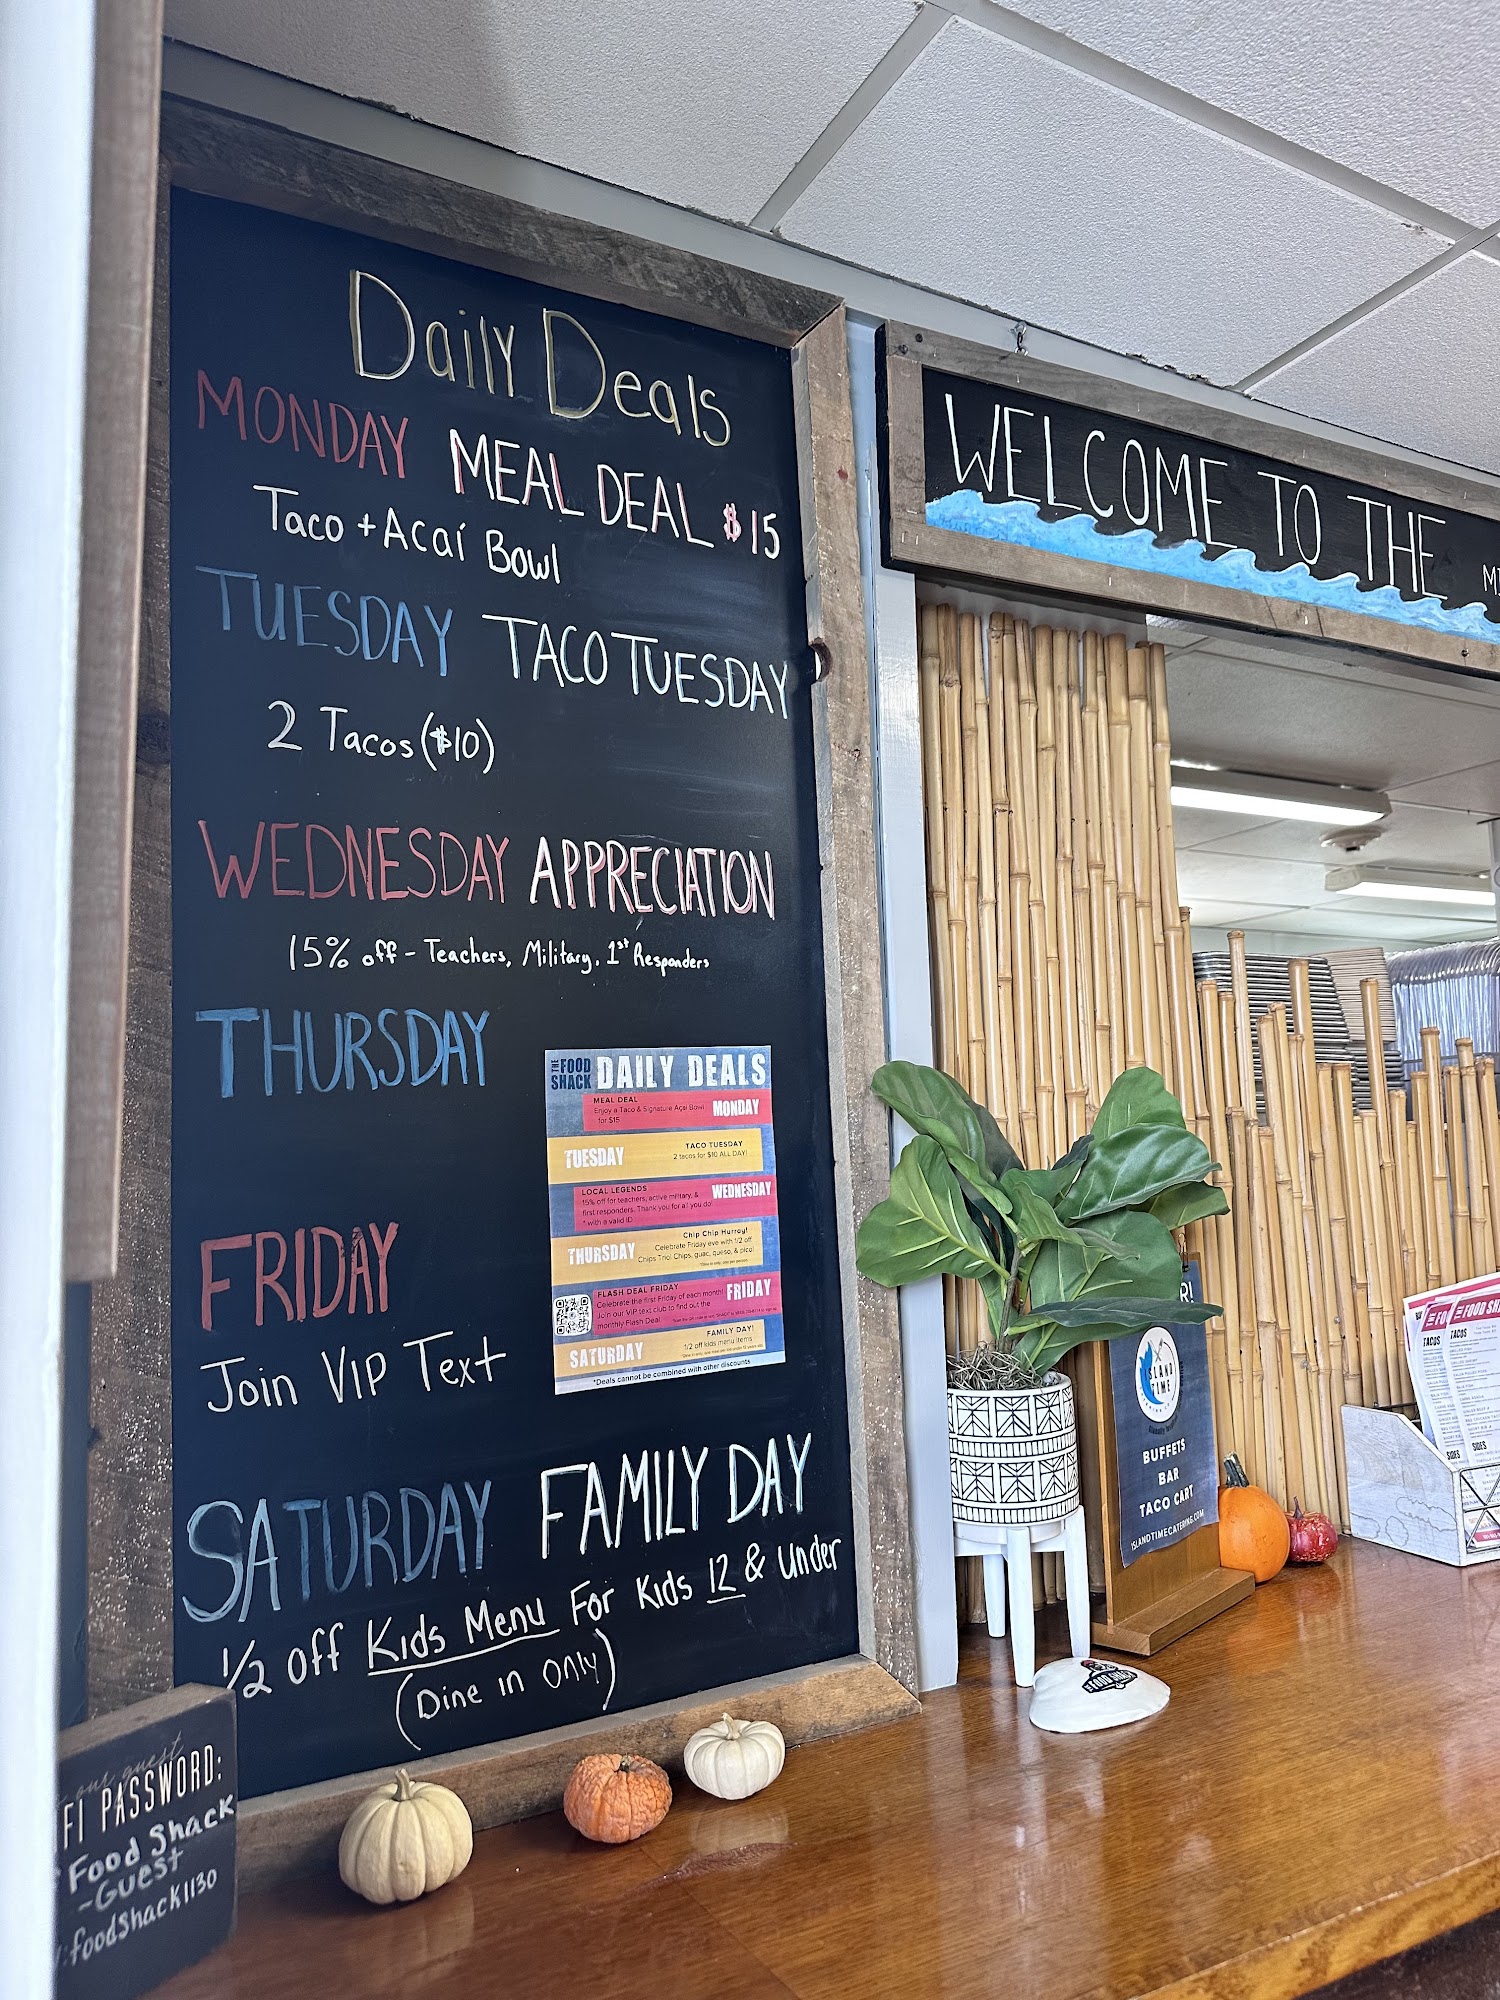 Daily Deals
MONDAY MEAL DEAL $15
Taco + Acaí Bowl
TUESDAY TACO TUESDAY
2 Tacos ($10)
WEDNESDAY APPRECIATION
15% off - Teachers, Military, 1st Responders
THURSDAY
FRIDAY
Join VIP Text
SATURDAY FAMILY DAY
1/2 off Kids Menu For Kids 12 & under
(Dine in Only)
THE FOOD SHACK DAILY DEALS
MEAL DEAL
Enjoy a Taco & Signature Açai Bowl
for $15
MONDAY
TUESDAY
TACO TUESDAY
2 tacos for $10 ALL DAY!
LOCAL LEGENDS
15% off for teachers, active military, &
first responders. Thank you for all you do!
* with a valid ID
WEDNESDAY
THURSDAY
Chip Chip Hurray!
Celebrate Friday eve with 1/2 off
Chips Trio! Chips, guac, queso, & pico!
FLASH DEAL FRIDAY
Celebrate the first Friday of each month!
Join our VIP text club to find out the
monthly Flash Deal
FRIDAY
SATURDAY
FAMILY DAY!
1/2 off kids menu items
*Deals cannot be combined with other discounts
WELCOME TO THE
our guest
FI PASSWORD:
Food Shack
-Guest
foodshack1130
R!
ISLAND
TIME
BUFFETS
BAR
TACO CART
ISLANDTIMECATERING.COM
FOOD SHACK
TACOS
TACOS
SIDES
SIDES